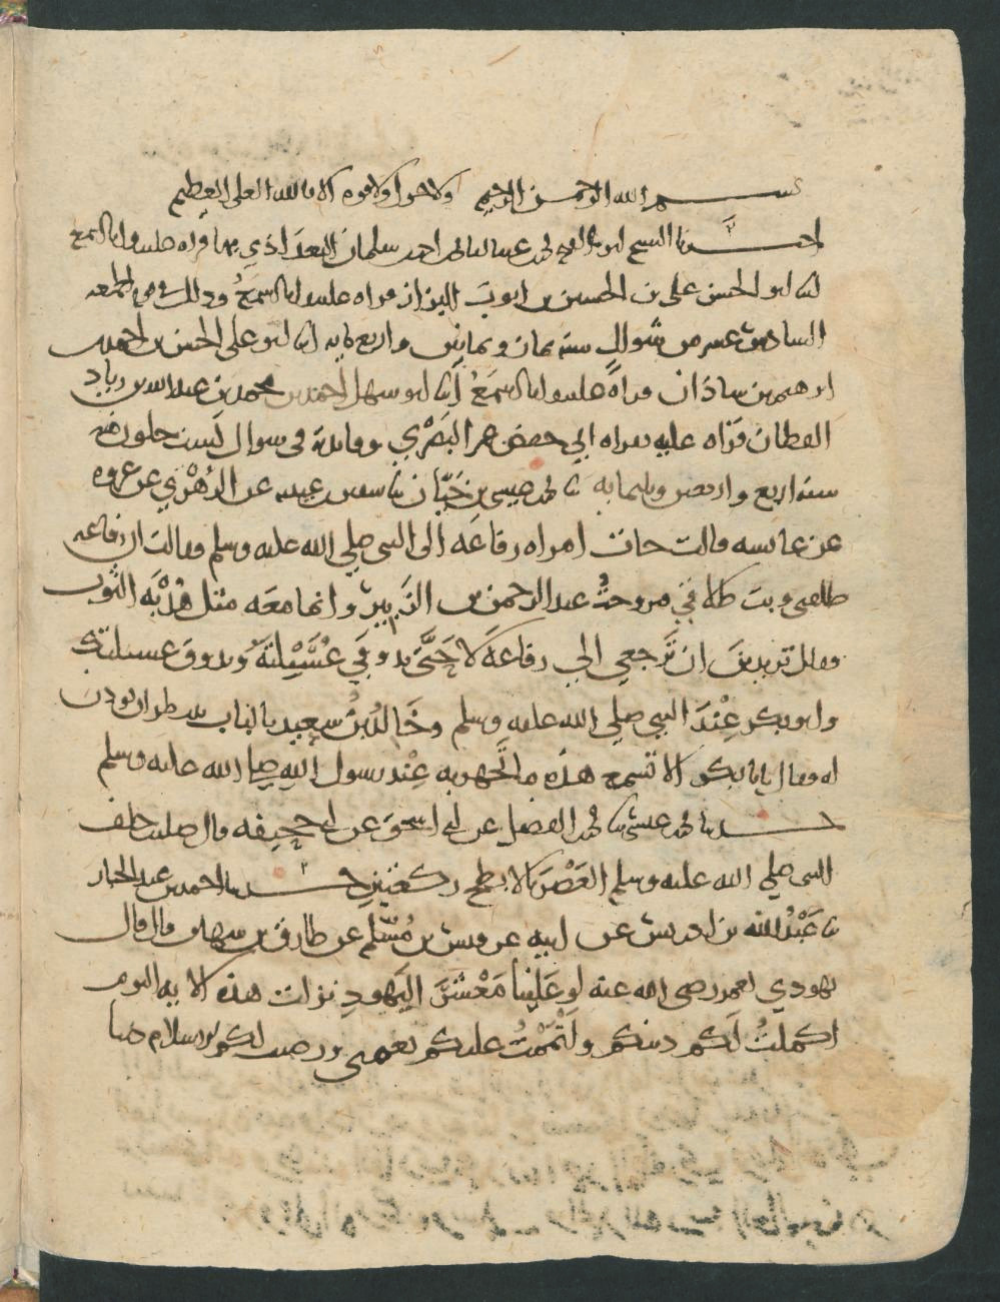 بسم الله الرحمن الرحيم ولا حول ولا قوة الا بالله العلي العظيم
اخبرنا الشيخ ابو الفتح محمد بن عبد الباقي بن احمد بن سلمان البغدادي بها قراه عليه وانا اسمع
انا ابو الحسن علي بن الحسين بن ايوب البزاز قراه عليه وانا اسمع وذلك في يوم الجمعه
السادس عشر من شوال سنه ثمان وثمانين واربع مايه انا ابو علي الحسن بن احمد بن
ابرهيم بن شاذان قراة عليه وانا اسمع انا ابو سهل احمد بن محمد بن عبد الله بن زياد
القطان قراه عليه بقراه ابي حفص عمر البصري في شوال لست خلون منه
سنه اربع واربعين وثلثمايه ثنا محمد بن عيسى بن حيان ثنا سفين بن عيينه عن الزهري عن عروه
عن عايشه قالت جات امراه رفاعه الى النبي صلى الله عليه وسلم فقالت ان رفاعه
طلقني وبت طلاقي فتزوجت عبد الرحمن بن الزبير وانما معه مثل هدبه الثوب
فقال تريدين ان ترجعي الى رفاعه لا حتى يذوقي عسيلته ويذوق عسيلتك
وابو بكر عند النبي صلى الله عليه وسلم وخالد بن سعيد بالباب ينتظر ان يوذن
له فقال يابا بكر الا تسمع هذه ما تجهر به عند رسول الله صلى الله عليه وسلم
حدثنا محمد بن عيسى ثنا محمد بن الفضيل عن ابي اسحق عن ابي جحيفه قال صليت خلف
النبي صلى الله عليه وسلم العصر بالابطح ركعتين حدثنا احمد بن عبد الجبار
ثنا عبد الله بن ادريس عن ابيه عن قيس بن مسلم عن طارق بن شهاب قال قال
يهودي لعمر رضي الله عنه لو علينا معشر اليهود نزلت هذه الايه اليوم
اكملت لكم دينكم واتممت عليكم نعمتي ورضيت لكم الاسلام دينا